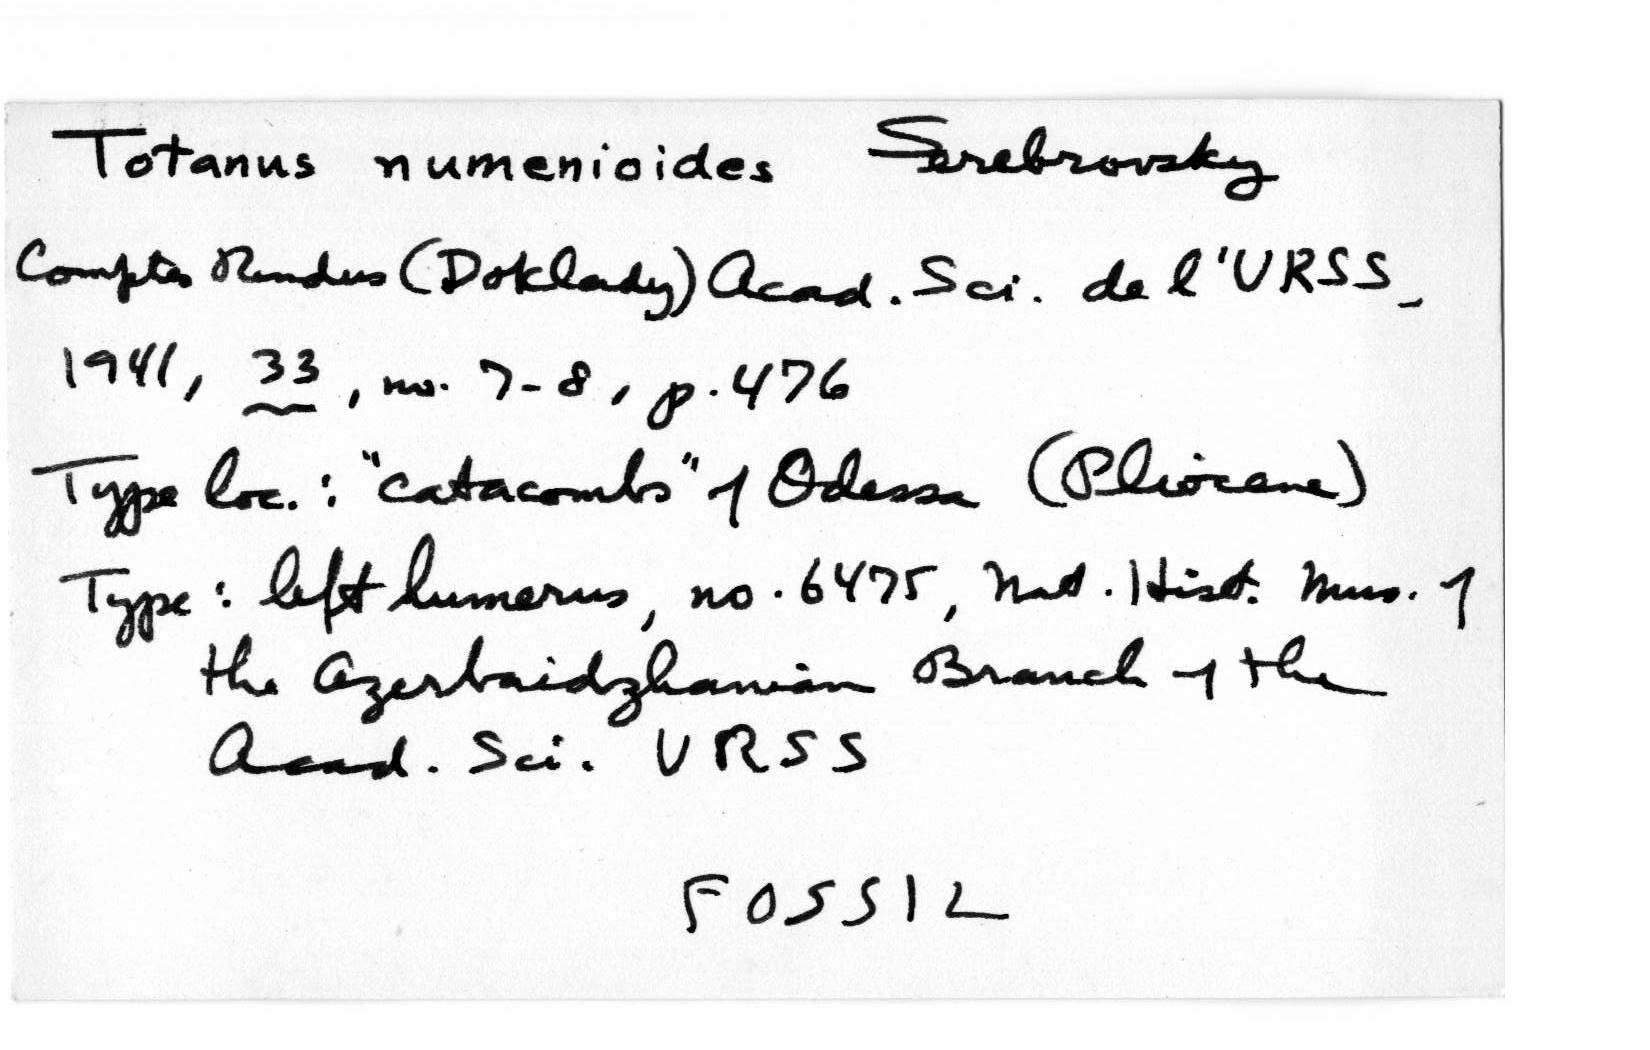 Totanus numenioides Serebrovsky
Comptes Rendus (Doklady) Acad. Sci. de l'URSS,
1941, 33, no. 7-8, p. 476
Type loc.: "catacombs" of Odessa (Pliocene)
Type: left humerus, no. 6475, Nat. Hist. Mus. of
the Azerbaidzhanian Branch of the
Acad. Sci. URSS
FOSSIL